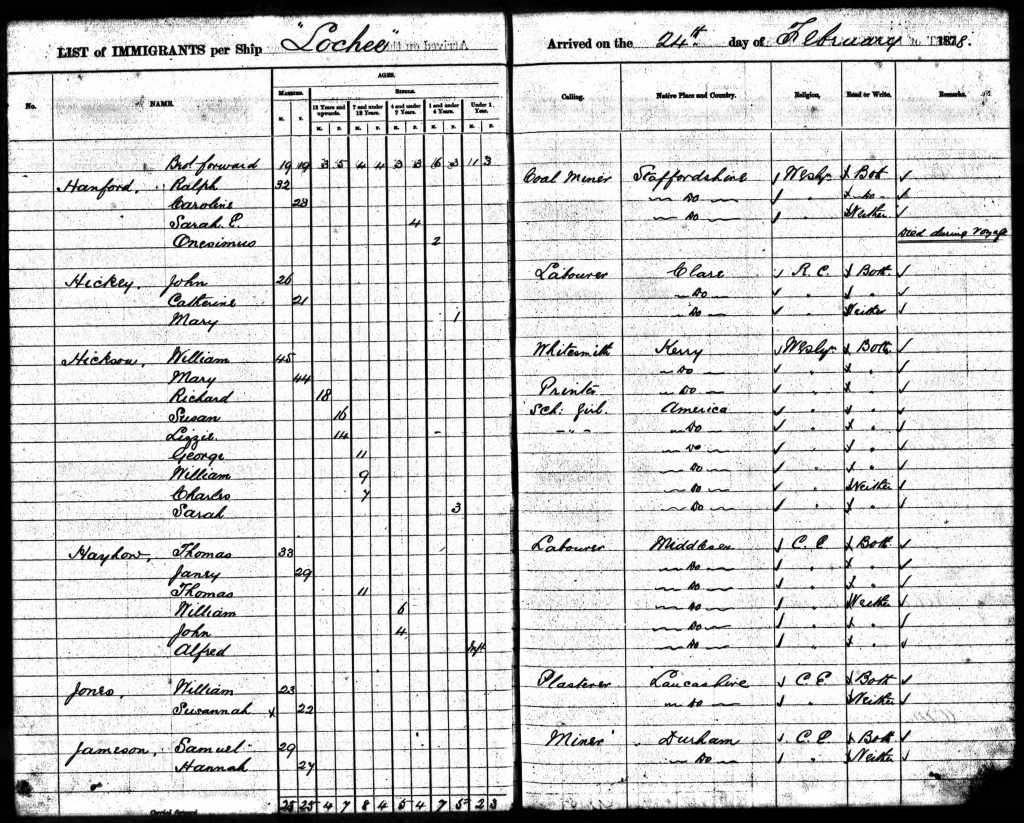 LIST of IMMIGRANTS per Ship "Lochee" Arrived on the 24th day of February 1878.
No. NAME. AGES. Calling. Native Place and Country. Religion. Read or Write. Remarks.
MARRIED. SINGLE.
12 Years and upwards. 7 and under 12 Years. 4 and under 7 Years. 1 and under 4 Years. Under 1 Year.
M. F. M. F. M. F. M. F. M. F. M. F.
Brot forward 19 19 3 5 4 4 3 3 6 3 11 3
Hanford, Ralph 32 Coal Miner Staffordshire Wesly Both
Caroline 28 Do Do
Sarah E. 4 Do Neither
Onesimus 2 Died during voyage
Hickey, John 26 Labourer Clare R. C. Both
Catherine 21 Do "
Mary 1 Do Neither
Hickson, William 45 Whitesmith Kerry Wesly Both
Mary 44 Do "
Richard 18 Printer Do "
Susan 16 Sch: Girl. America "
Lizzie 14 " Do "
George 11 Do "
William 9 Do "
Charles 7 Do Neither
Sarah 3 Do "
Hayhow, Thomas 33 Labourer Middlesex C. E Both
Janey 29 Do "
Thomas 11 Do "
William 6 Do Neither
John 4 Do "
Alfred Inft Do "
Jones, William 23 Plasterer Lancashire C. E. Both
Susannah x 22 Do Neither
Jameson, Samuel 29 Miner Durham C. E Both
Hannah 27 Do Neither
Carried Forward 25 25 4 7 8 4 5 4 7 5 2 3